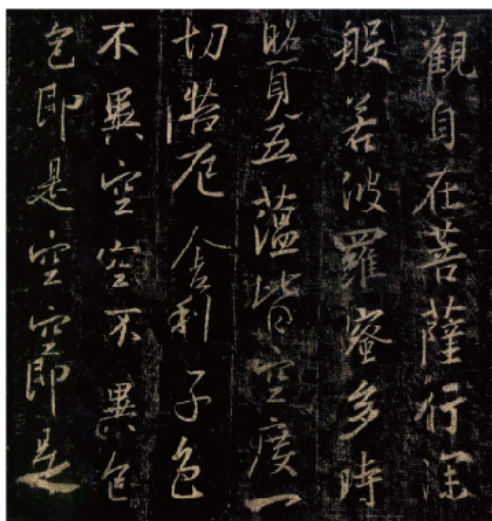 觀自在菩薩行深
般若波羅蜜多時
照見五蘊皆空度一
切苦厄舍利子色
不異空空不異色
色即是空空即是